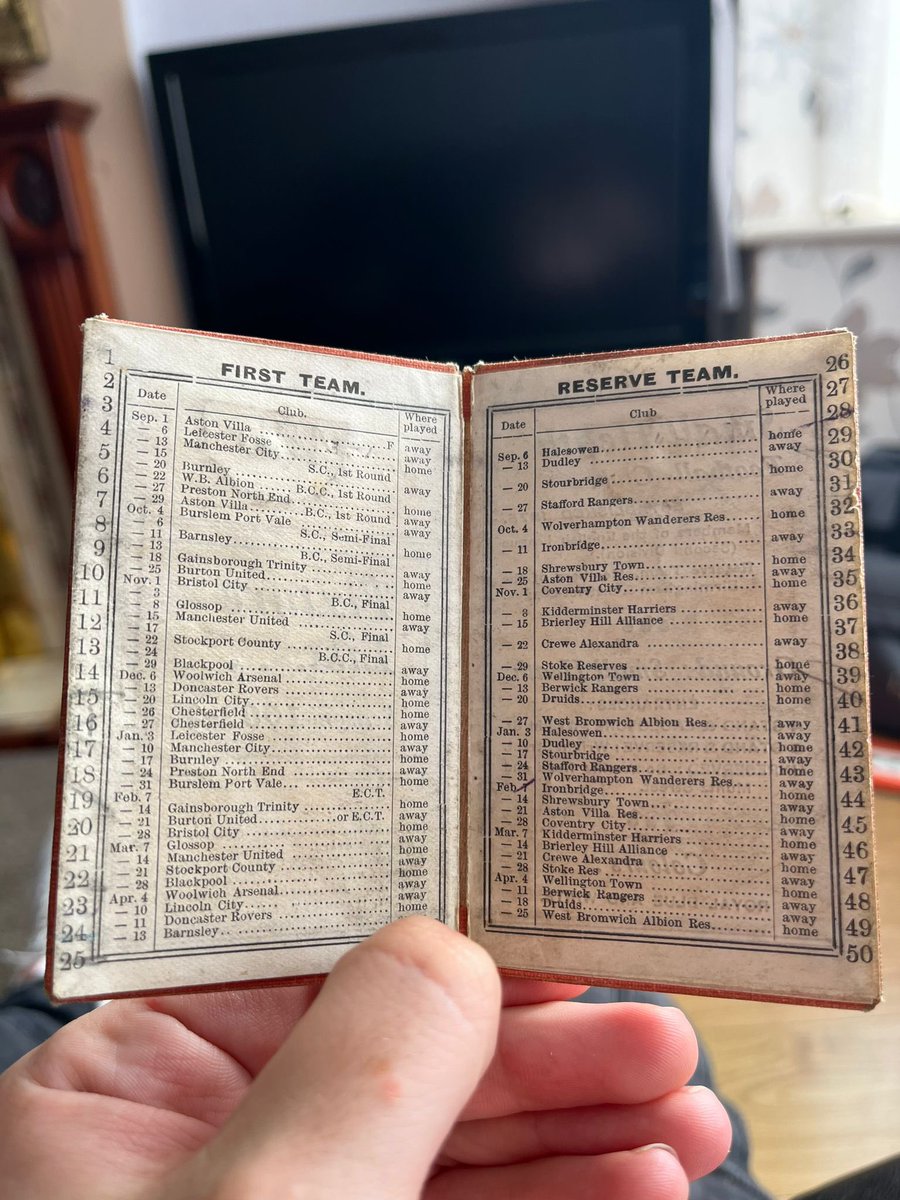 FIRST TEAM.
Date Club. Where played
Sep. 1 Aston Villa F away
— 6 Leicester Fosse away
— 13 Manchester City home
— 15 S.C., 1st Round
— 20 Burnley away
— 22 W.B. Albion B.C.C., 1st Round
— 27 Preston North End home
— 29 Aston Villa B.C., 1st Round away
Oct. 4 Burslem Port Vale away
— 6 S.C., Semi-Final
— 11 Barnsley home
— 13 B.C., Semi-Final
— 18 Gainsborough Trinity away
— 25 Burton United home
Nov. 1 Bristol City away
— 3 B.C., Final
— 8 Glossop home
— 15 Manchester United away
— 17 S.C., Final
— 22 Stockport County home
— 24 B.C.C., Final
— 29 Blackpool away
Dec. 6 Woolwich Arsenal home
— 13 Doncaster Rovers away
— 20 Lincoln City home
— 26 Chesterfield home
— 27 Chesterfield away
Jan. 3 Leicester Fosse home
— 10 Manchester City away
— 17 Burnley home
— 24 Preston North End away
— 31 Burslem Port Vale home
Feb. 7 E.C.T.
— 14 Gainsborough Trinity home
— 21 Burton United or E.C.T. away
— 28 Bristol City home
Mar. 7 Glossop away
— 14 Manchester United home
— 21 Stockport County away
— 28 Blackpool home
Apr. 4 Woolwich Arsenal away
— 10 Lincoln City away
— 11 Doncaster Rovers home
— 13 Barnsley
1
2
3
4
5
6
7
8
9
10
11
12
13
14
15
16
17
18
19
20
21
22
23
24
25
RESERVE TEAM.
Date Club Where played
Sep. 6 Halesowen home
— 13 Dudley away
— 20 Stourbridge home
— 27 Stafford Rangers away
Oct. 4 Wolverhampton Wanderers Res. home
— 11 Ironbridge away
— 18 Shrewsbury Town home
— 25 Aston Villa Res. away
Nov. 1 Coventry City home
— 8 Kidderminster Harriers away
— 15 Brierley Hill Alliance home
— 22 Crewe Alexandra away
— 29 Stoke Reserves home
Dec. 6 Wellington Town away
— 13 Berwick Rangers home
— 20 Druids home
— 27 West Bromwich Albion Res. away
Jan. 3 Halesowen away
— 10 Dudley home
— 17 Stourbridge away
— 24 Stafford Rangers home
— 31 Wolverhampton Wanderers Res. away
Feb. Ironbridge home
— 14 Shrewsbury Town away
— 21 Aston Villa Res. home
— 28 Coventry City away
Mar. 7 Kidderminster Harriers home
— 14 Brierley Hill Alliance away
— 21 Crewe Alexandra home
— 28 Stoke Res away
Apr. 4 Wellington Town home
— 11 Berwick Rangers away
— 18 Druids away
— 25 West Bromwich Albion Res. home
26
27
28
29
30
31
32
33
34
35
36
37
38
39
40
41
42
43
44
45
46
47
48
49
50